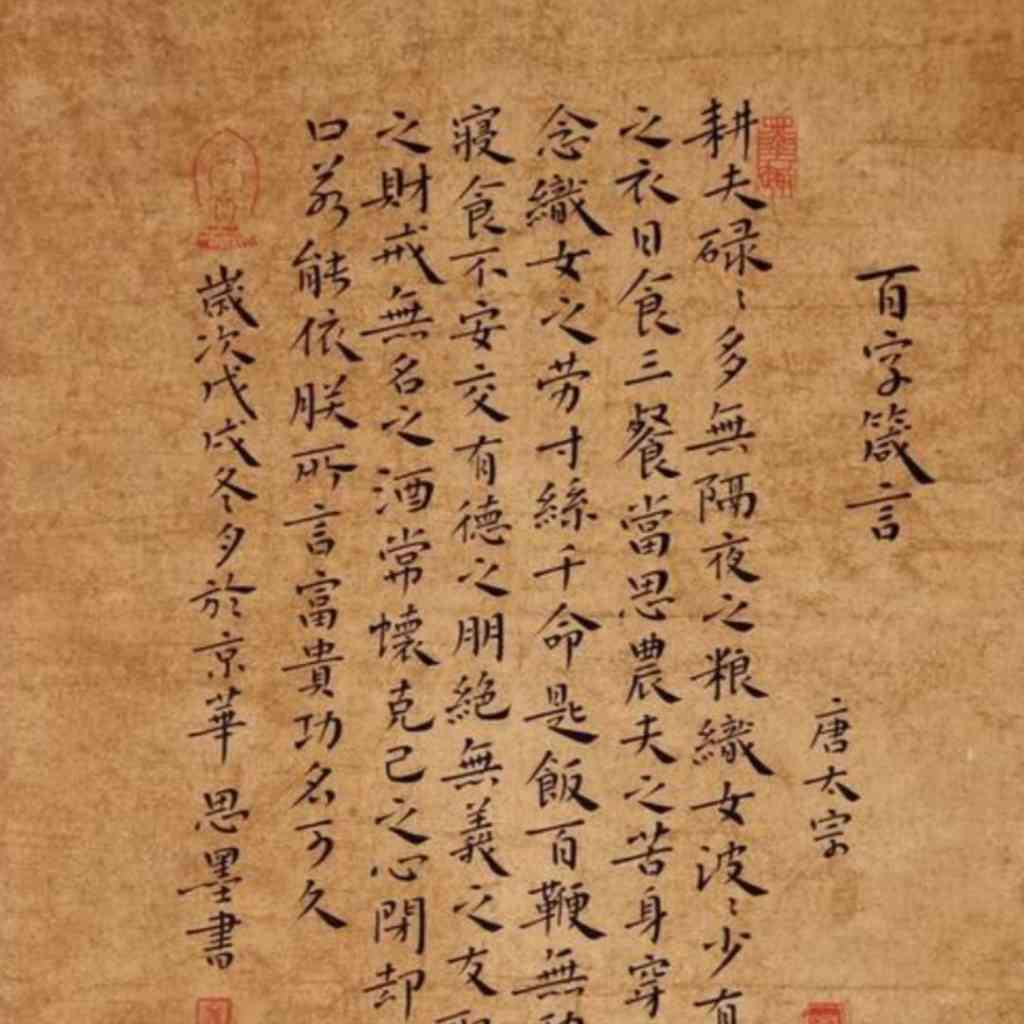 百字箴言
唐太宗
耕夫碌〻多無隔夜之粮織女波〻少有
之衣日食三餐當思農夫之苦身穿
念織女之劳寸絲千命匙飯百鞭無
寢食不安交有德之朋絕無義之友
之財戒無名之酒常懷克己之心閉却
口若能依朕所言富貴功名可久
歲次戊戌冬夕於京華 思墨書